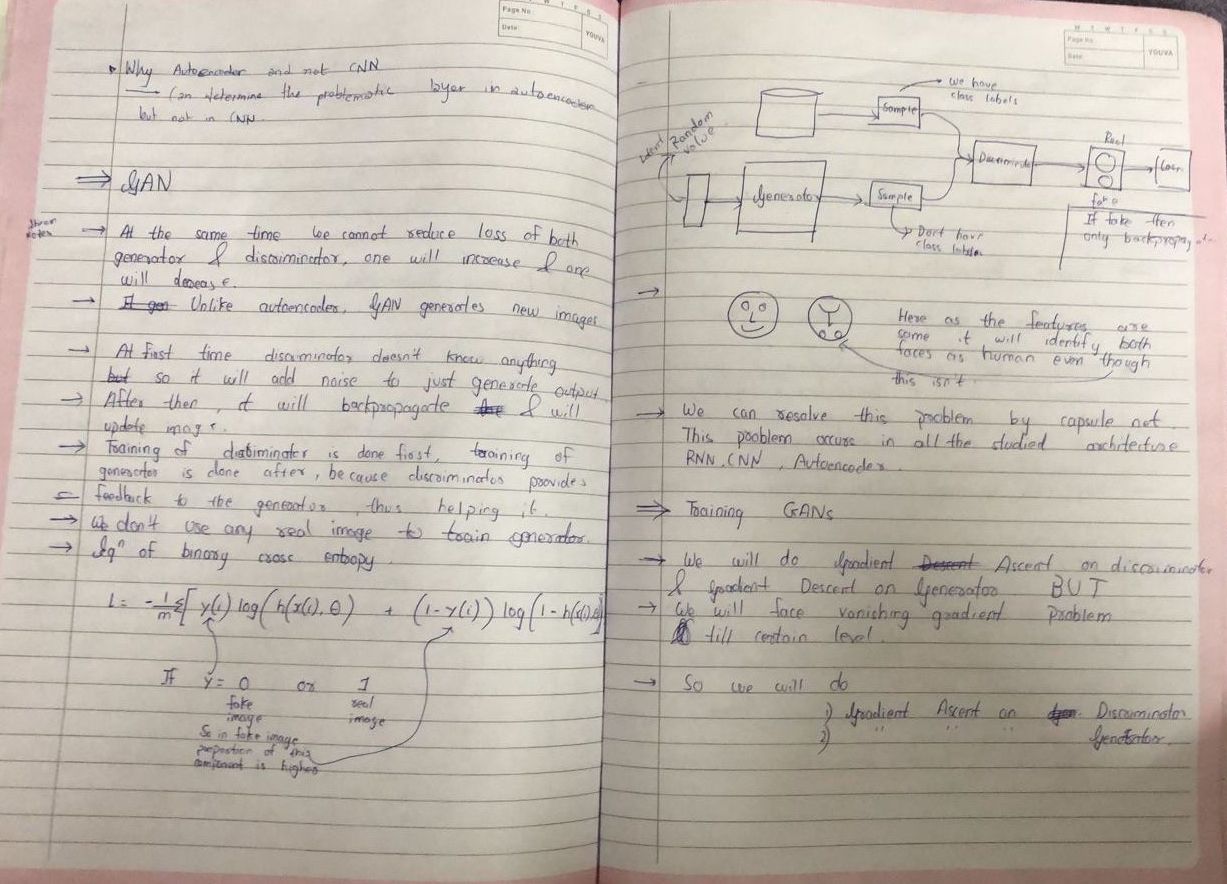 Page No.
Date
YOUVA
Why Autoencoder and not CNN
Can determine the problematic layer in autoencoder
but not in CNN.
⇒ GAN
→ At the same time we cannot reduce loss of both
generator & discriminator, one will increase & one
will decrease.
→ Unlike autoencoder, GAN generates new images
→ At first time discriminator doesn't know anything
but so it will add noise to just generate output
→ After then, it will backpropagate & will
update image.
→ Training of discriminator is done first, training of
generator is done after, because discriminator provides
= feedback to the generator, thus helping it.
→ We don't use any real image to train generator.
→ Eqⁿ of binary cross entropy.
L = -1/m Σ[y(i) log(h(x(i), θ) + (1-y(i)) log(1-h(x(i),θ)]
If y = 0 or 1
fake real
image image
So in fake image
proportion of this
component is higher
M T W T F S S
Page No.
Date
YOUVA
we have
class labels
Sample
Random
value
Real
Generator
Sample
Discriminator
Loss
fake
Don't have
class labels
If fake then
only backpropagat
→
Here as the features are
same it will identify both
faces as human even though
this isn't.
→ We can resolve this problem by capsule net.
This problem occurs in all the studied architecture
RNN, CNN, Autoencoder.
⇒ Training GANs
→ We will do Gradient Descent Ascent on discriminator
& Gradient Descent on Generator BUT
→ We will face vanishing gradient problem
till certain level.
→ So we will do
1) Gradient Ascent on Discriminator
2) " " " Generator